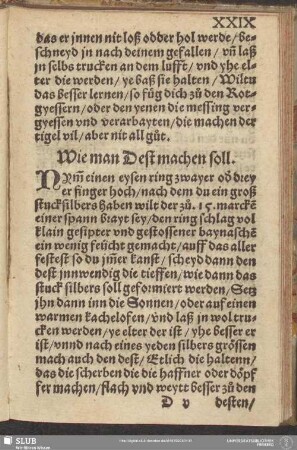 XXIX
das er jnnen nit loß odder hol werde / be-
schneyd jn nach deinem gefallen / vñ laß
jn selbs trucken an dem lufft / vnd yhe el-
ter die werden / ye baß sie halten / Wiltu
das besser lernen / so füg dich zů den Rot-
gyessern / oder den yenen die messing ver-
gyessen vnd verarbayten / die machen der
tigel vil / aber nit all gůt.
Wie man Dest machen soll.
NYm̃ einen eysen ring zwayer oð dꝛey
er finger hoch / nach dem du ein groß
stuck silbers haben wilt der zů. 15. marckẽ
einer spann bꝛayt sey / den ring schlag vol
klain gesipter vnd gestossener baynaschẽ
ein wenig feücht gemacht / auff das aller
festest so du jm̃er kanst / scheyd dann den
dest jnnwendig die tieffen / wie dann das
stuck silbers soll geformiert werden / Setz
jhn dann inn die Sonnen / oder auf einen
warmen kachelofen / vnd laß jn wol tru-
cken werden / ye elter der ist / yhe besser er
ist / vnnd nach eines yeden silbers grössen
mach auch den dest / Etlich die haltenn /
das die scherben die die haffner oder döpf
fer machen / flach vnd weyt besser zů den
D v desten /
SLUB
Wir führen Wissen.